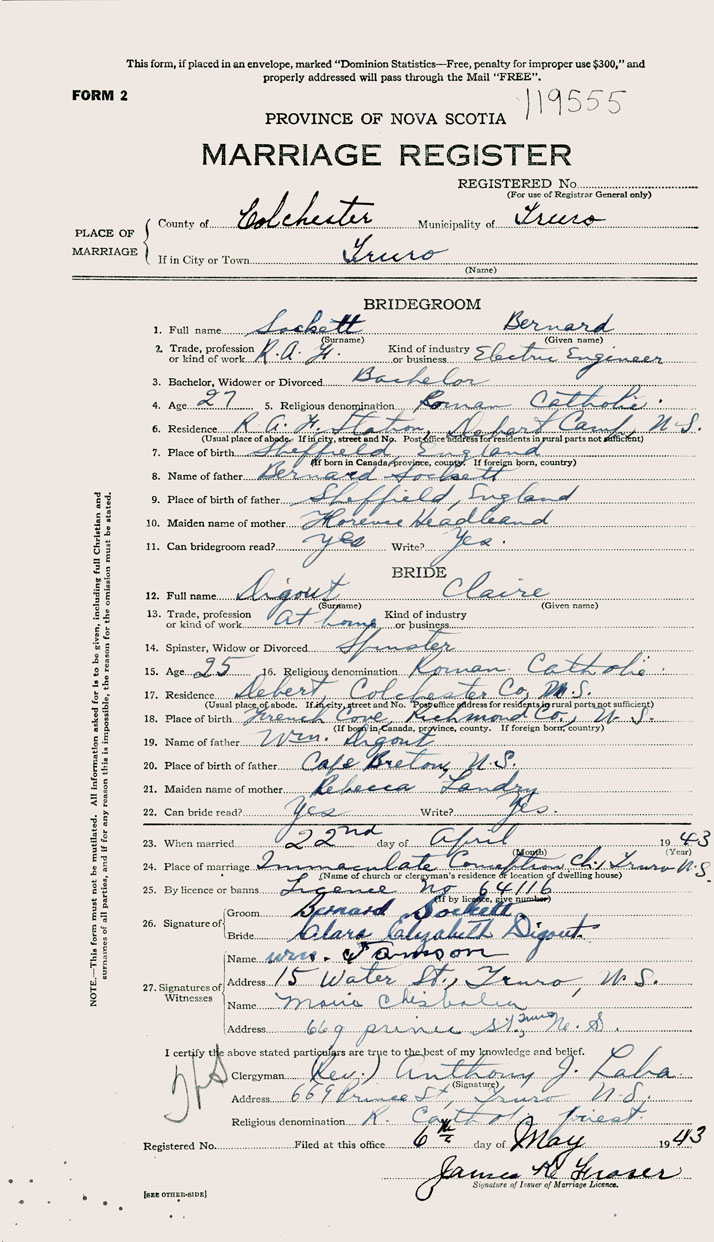 This form, if placed in an envelope, marked "Dominion Statistics—Free, penalty for improper use $300," and
properly addressed will pass through the Mail "FREE".
FORM 2
119555
PROVINCE OF NOVA SCOTIA
MARRIAGE REGISTER
REGISTERED No.
(For use of Registrar General only)
PLACE OF MARRIAGE
County of Colchester Municipality of Truro
If in City or Town Truro
(Name)
BRIDEGROOM
1. Full name Sockett Bernard
(Surname) (Given name)
2. Trade, profession or kind of work R.A.F. Kind of industry or business Electric Engineer
3. Bachelor, Widower or Divorced Bachelor
4. Age 27 5. Religious denomination Roman Catholic.
6. Residence R.A.F. Station, Debert Camp, N.S.
(Usual place of abode. If in city, street and No. Post office address for residents in rural parts not sufficient)
7. Place of birth Sheffield, England
(If born in Canada, province, county. If foreign born, country)
8. Name of father Bernard Sockett
9. Place of birth of father Sheffield, England
10. Maiden name of mother Florence Headleand
11. Can bridegroom read? yes Write? Yes.
BRIDE
12. Full name Digout Claire
(Surname) (Given name)
13. Trade, profession or kind of work At home Kind of industry or business
14. Spinster, Widow or Divorced Spinster
15. Age 25 16. Religious denomination Roman Catholic.
17. Residence Debert, Colchester Co, N.S.
(Usual place of abode. If in city, street and No. Post office address for residents in rural parts not sufficient)
18. Place of birth French Cove, Richmond Co., N.S.
(If born in Canada, province, county. If foreign born, country)
19. Name of father Wm. Digout
20. Place of birth of father Cape Breton, N.S.
21. Maiden name of mother Rebecca Landry
22. Can bride read? Yes Write? Yes.
23. When married 22nd day of April 1943
(Month) (Year)
24. Place of marriage Immaculate Conception Ch., Truro N.S.
(Name of church or clergyman's residence or location of dwelling house)
25. By licence or banns Licence No 64116
(If by licence, give number)
26. Signature of
Groom Bernard Sockett.
Bride Clara Elizabeth Digout.
27. Signatures of Witnesses
Name wm. Jamison
Address 15 Water St., Truro, N.S.
Name Marie
Address 669 prince St, Truro N.S.
I certify the above stated particulars are true to the best of my knowledge and belief.
Clergyman (Rev.) Anthony J. Laba
(Signature)
Address 669 Prince St, Truro N.S.
Religious denomination R. Cathol. priest.
Registered No. Filed at this office 6th day of May 1943
James Fraser
Signature of Issuer of Marriage Licence.
[SEE OTHER-SIDE]
NOTE.—This form must not be mutilated. All information asked for is to be given, including full Christian and
surnames of all parties, and if for any reason this is impossible, the reason for the omission must be stated.